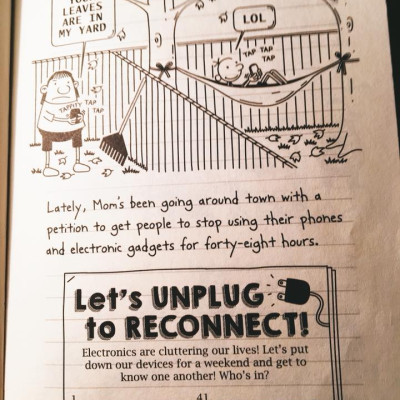 LEAVES
ARE IN
MY YARD
LOL
TAP TAP
TAP
TAPPITY TAP
TAP
Lately, Mom's been going around town with a
petition to get people to stop using their phones
and electronic gadgets for forty-eight hours.
Let's UNPLUG
to RECONNECT!
Electronics are cluttering our lives! Let's put
down our devices for a weekend and get to
know one another! Who's in?
1 41